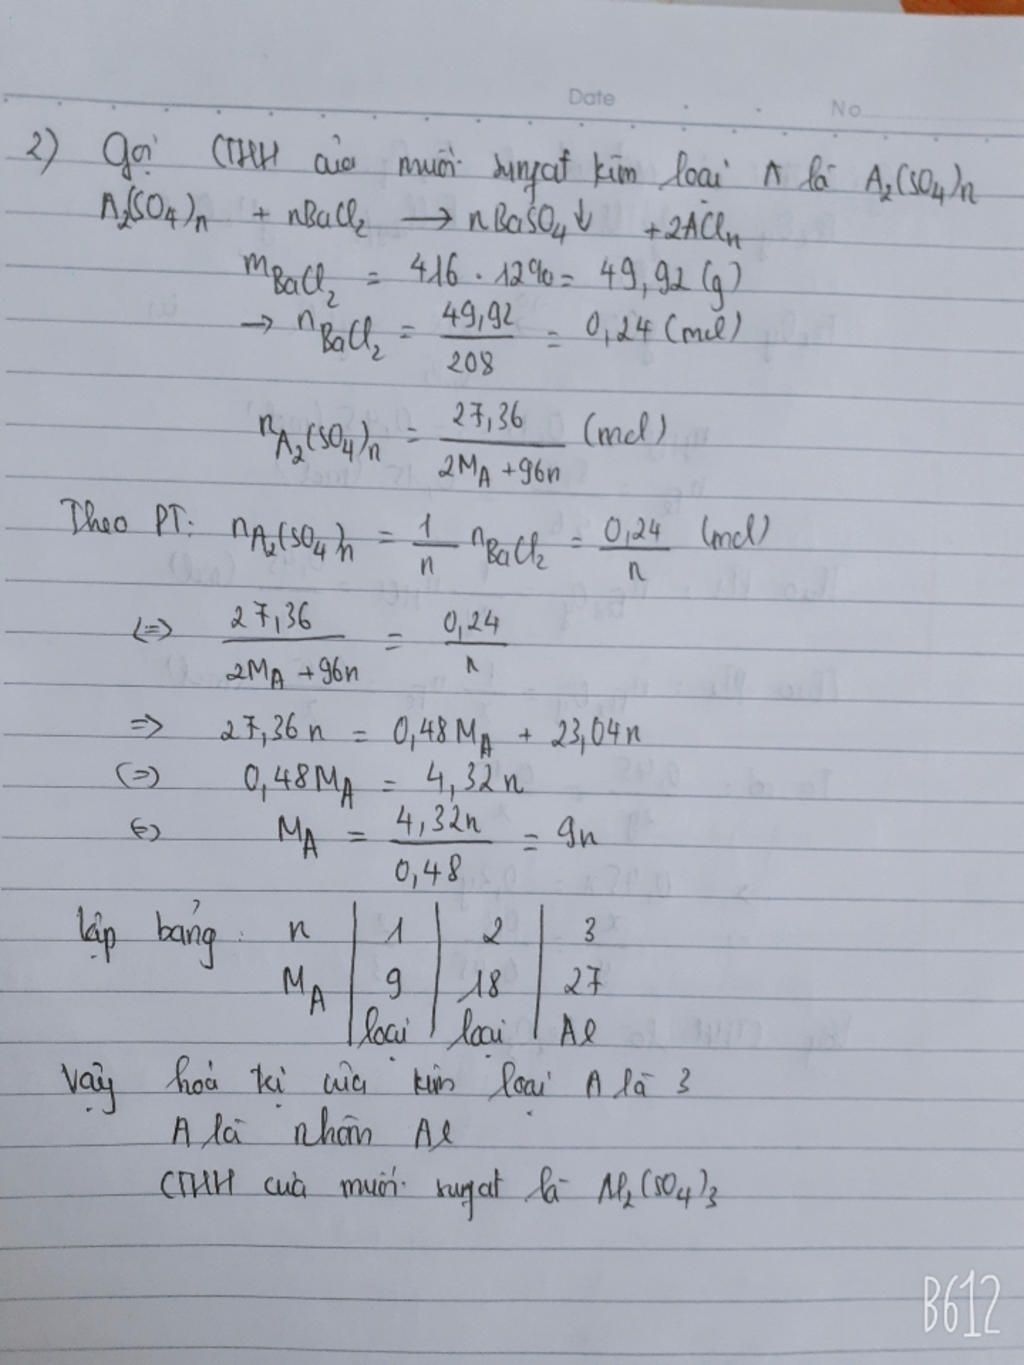 Date No
2) Gọi CTHH của muối sunfat kim loại A là A₂(SO₄)n
A₂(SO₄)n + nBaCl₂ → nBaSO₄↓ + 2ACln
mBaCl₂ = 416 . 12% = 49,92 (g)
→ nBaCl₂ = 49,92/208 = 0,24 (mol)
nA₂(SO₄)n = 27,36/(2MA + 96n) (mol)
Theo PT: nA₂(SO₄)n = 1/n nBaCl₂ = 0,24/n (mol)
(=) 27,36/(2MA + 96n) = 0,24/n
=> 27,36n = 0,48MA + 23,04n
(=) 0,48MA = 4,32n
(=) MA = 4,32n/0,48 = 9n
Lập bảng: n | 1 | 2 | 3
MA | 9 | 18 | 27
| loại | loại | Al
Vậy hoá trị của kim loại A là 3
A là nhôm Al
CTHH của muối sunfat là Al₂(SO₄)₃
B612